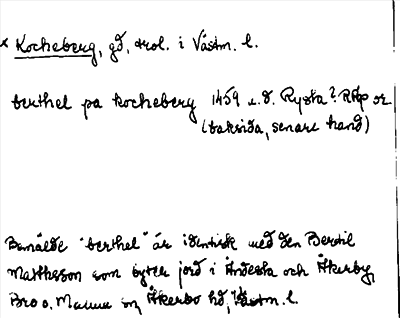 x Kocheberg, gd, trol. i Västm. l.
berthel pa kocheberg 1459 u.d. Rysta? RAp or
(baksida, senare hand)
Bemälde "berthel" är identisk med den Bertil
Mattsson som byter jord i Åndesta och Åkerby,
Bro o. Malma sn, Åkerbo hd, Västm. l.